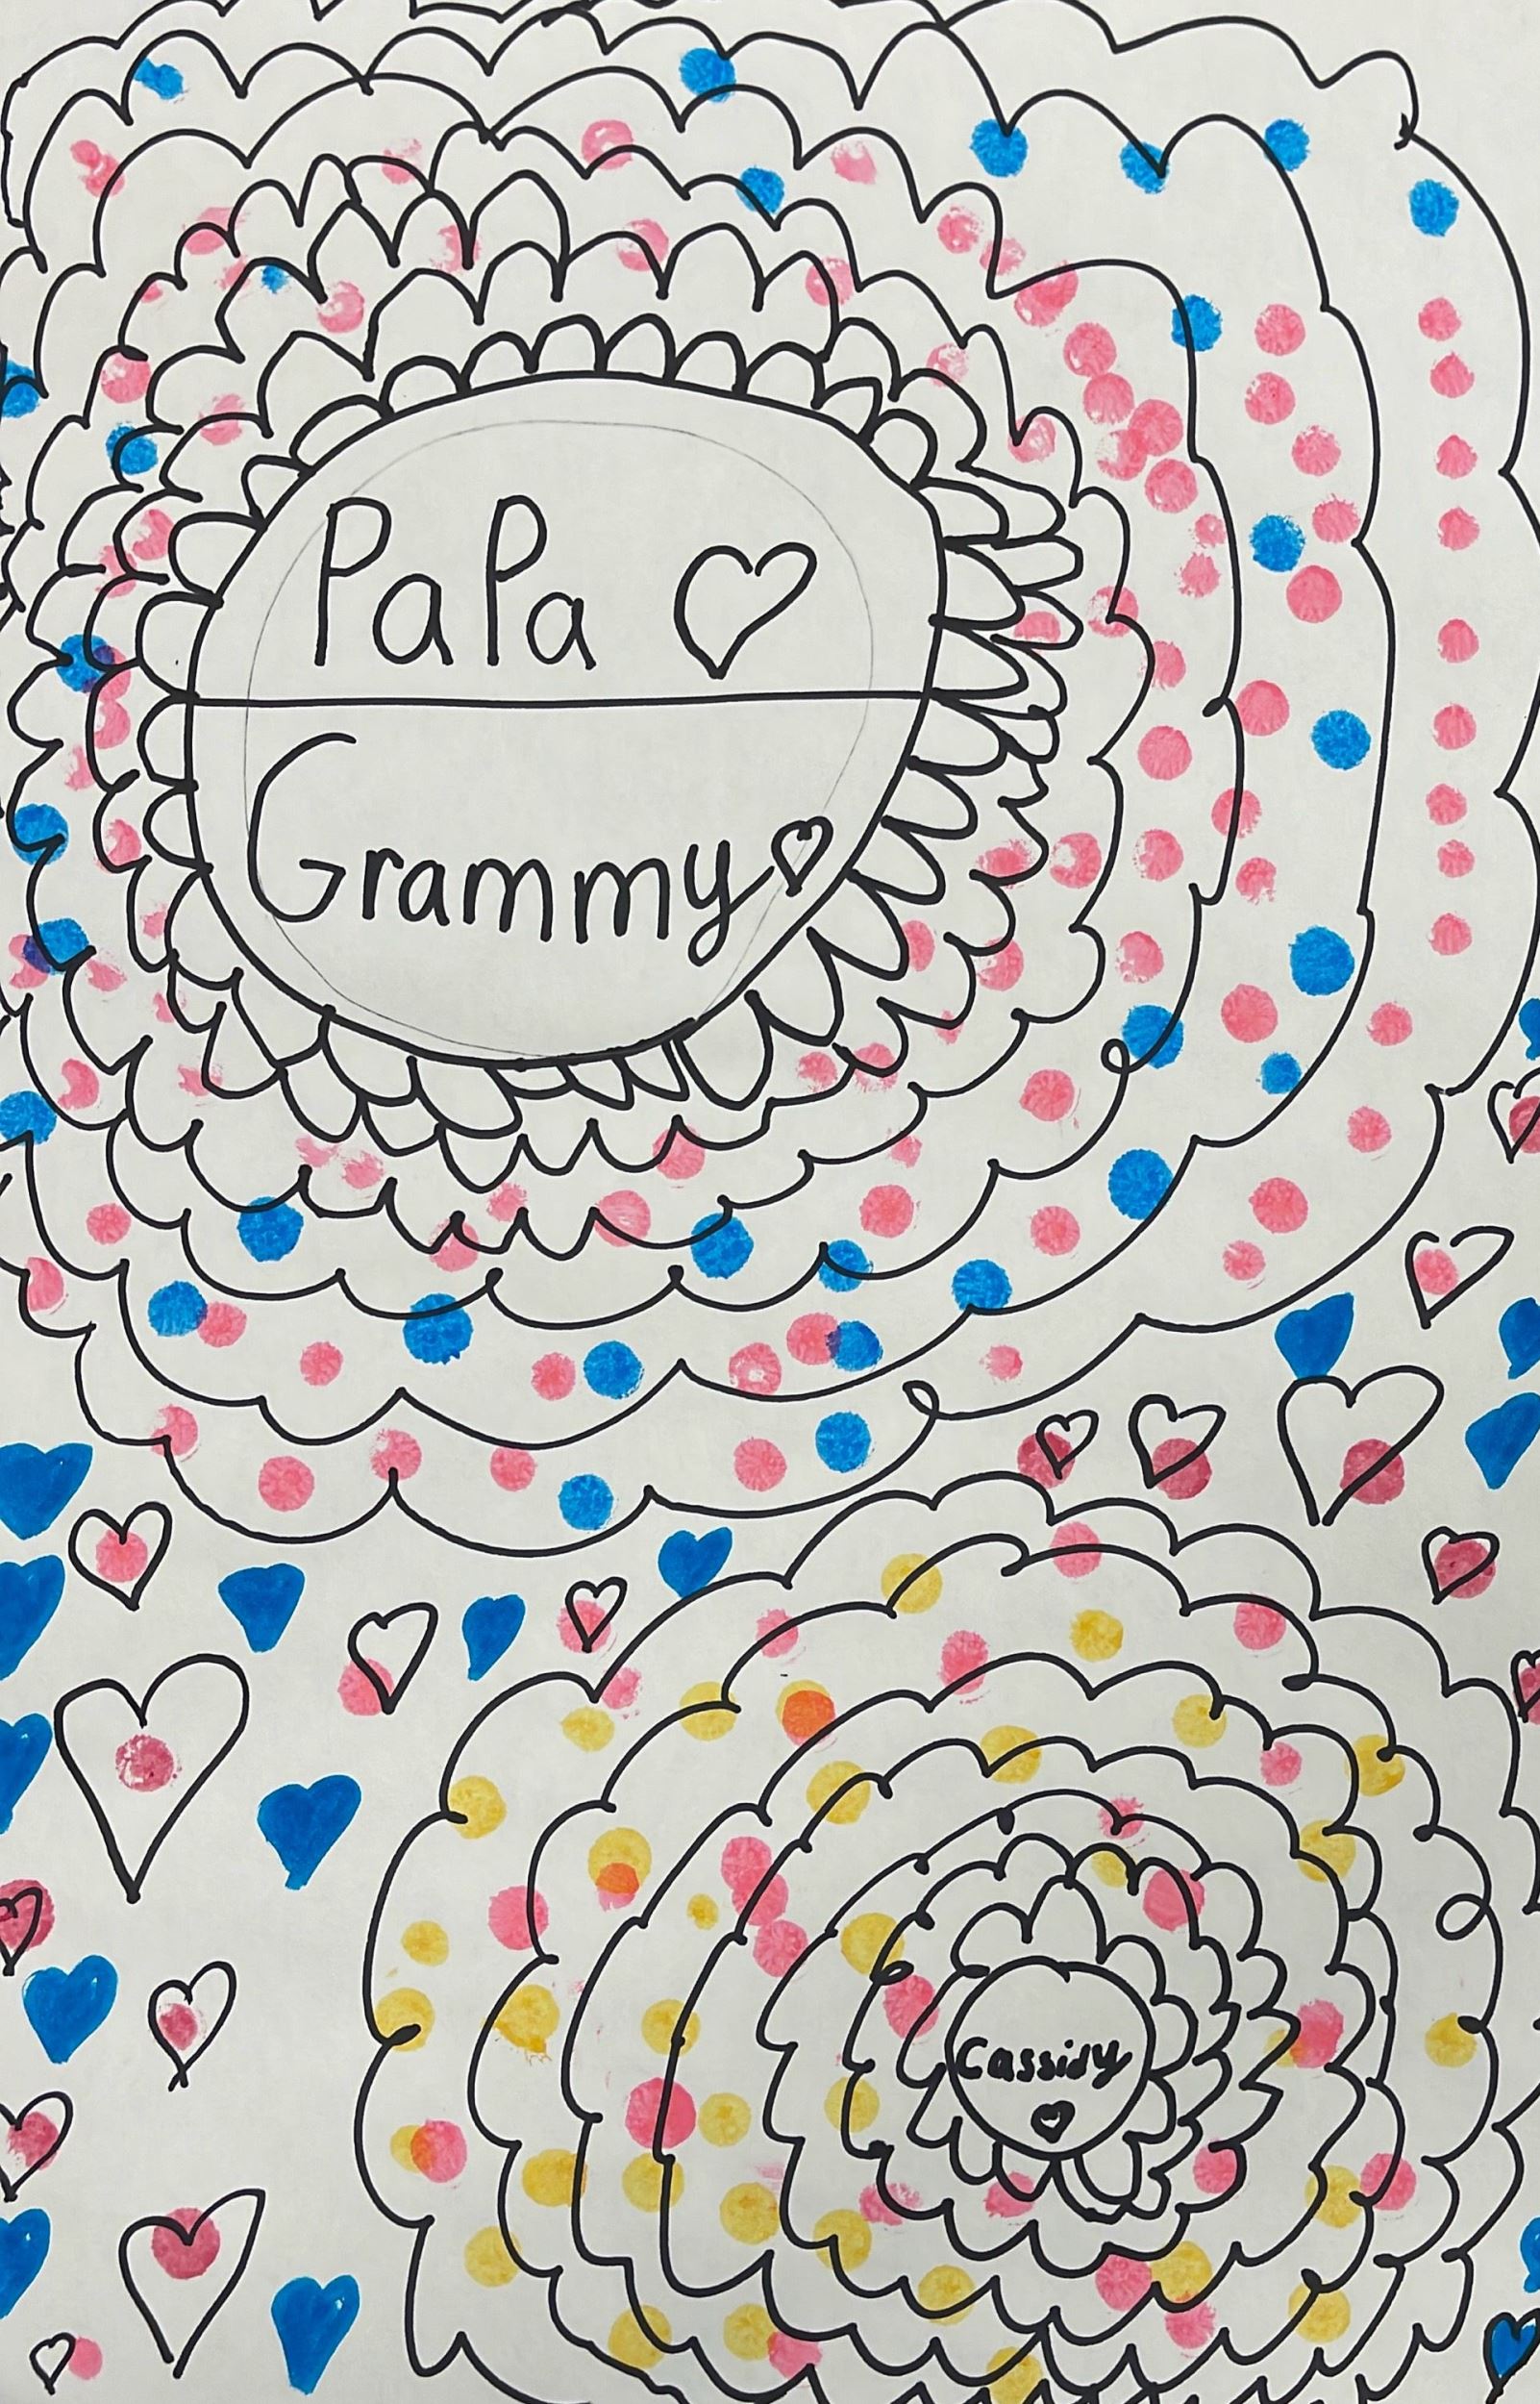 PaPa
Grammy
Cassidy